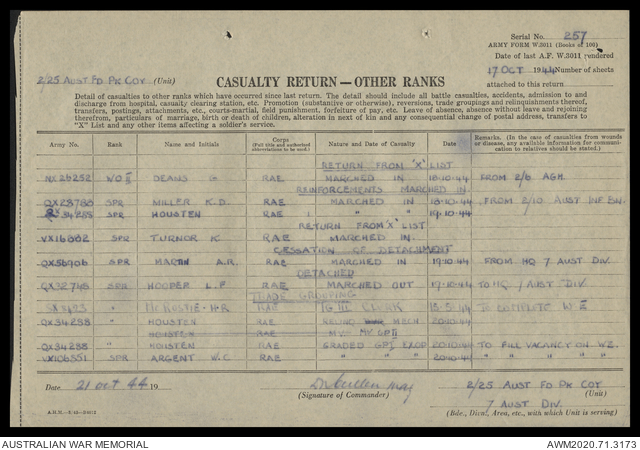 Serial No. 257
ARMY FORM W.3011 (Books of 100)
Date of last A.F. W.3011 rendered
17 OCT 1944 Number of sheets
attached to this return
2/25 AUST FD PK COY (Unit)
CASUALTY RETURN — OTHER RANKS
Detail of casualties to other ranks which have occurred since last return. The detail should include all battle casualties, accidents, admission to and
discharge from hospital, casualty clearing station, etc. Promotion (substantive or otherwise), reversions, trade groupings and relinquishments thereof,
transfers, postings, attachments, etc., courts-martial, field punishment, forfeiture of pay, etc. Leave of absence, absence without leave and rejoining
therefrom, particulars of marriage, birth or death of children, alteration in next of kin and any consequential change of postal address, transfers to
"X" List and any other items affecting a soldier's service.
Army No. Rank Name and Initials Corps (Full title and authorised abbreviations to be used) Nature and Date of Casualty Date Remarks. (In the case of casualties from wounds or disease, any available information for communication to relatives should be stated.)
RETURN FROM 'X' LIST
NX26252 WO II DEANS G. RAE MARCHED IN 18-10-44 FROM 2/6 AGH
REINFORCEMENTS MARCHED IN
QX23788 SPR MILLER K.D. RAE MARCHED IN 18-10-44 FROM 2/10 AUST INF BN.
34288 SPR HOUSTEN RAE " " 19.10.44
RETURN FROM 'X' LIST
VX16002 SPR TURNOR K RAE MARCHED IN
CESSATION OF DETACHMENT
QX56906 SPR MARTIN A.R. RAE MARCHED IN 19.10.44 FROM HQ 7 AUST DIV.
DETACHED
QX32748 SPR HOOPER L.F RAE MARCHED OUT 19-10-44 TO HQ 7 AUST DIV.
TRADE GROUPING
" McROSTIE H.R. RAE CLERK TO COMPLETE W E
QX34288 " HOUSTEN RAE MECH 20-10-44
HOUSTEN RAE
QX34288 " HOUSTEN RAE GRADED GP I 20-10-44 TO FILL VACANCY ON WE.
VX106351 SPR ARGENT W.C. RAE " " " 20-10-44 " " "
Date 21 OCT 44 19
(Signature of Commander)
2/25 AUST FD PK COY
(Unit)
7 AUST DIV.
(Bde., Divn., Area, etc., with which Unit is serving)
AUSTRALIAN WAR MEMORIAL
AWM2020.71.3173